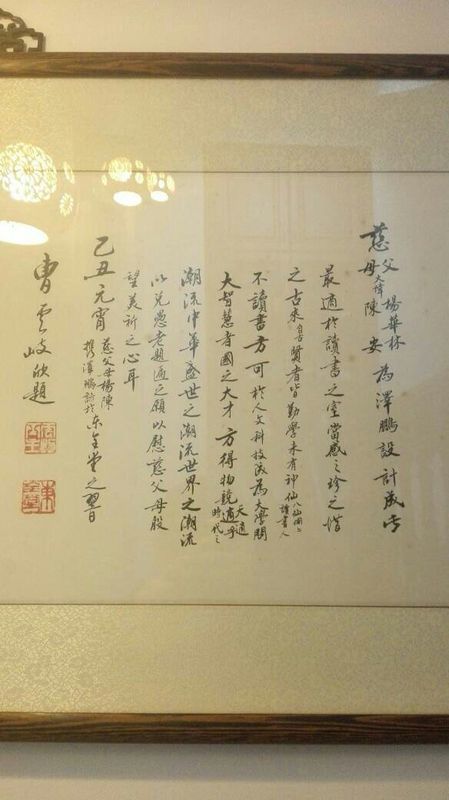 慈父楊華林母陳安為澤鵬設計成
最適於讀書之室當感之珍之惜
之古來賢者皆勤學未有神仙讀書人
不讀書方可於人文科技成為大學問
大智慧者國之大才方得物競天適乎時代之
潮流中華盛世之潮流世界之潮流
以兌愚老題之願以慰慈父母殷
望美祈之心耳
己丑元宵慈父母楊陳攜澤鵬訪於东堂之翌日
曹雲岐欣題